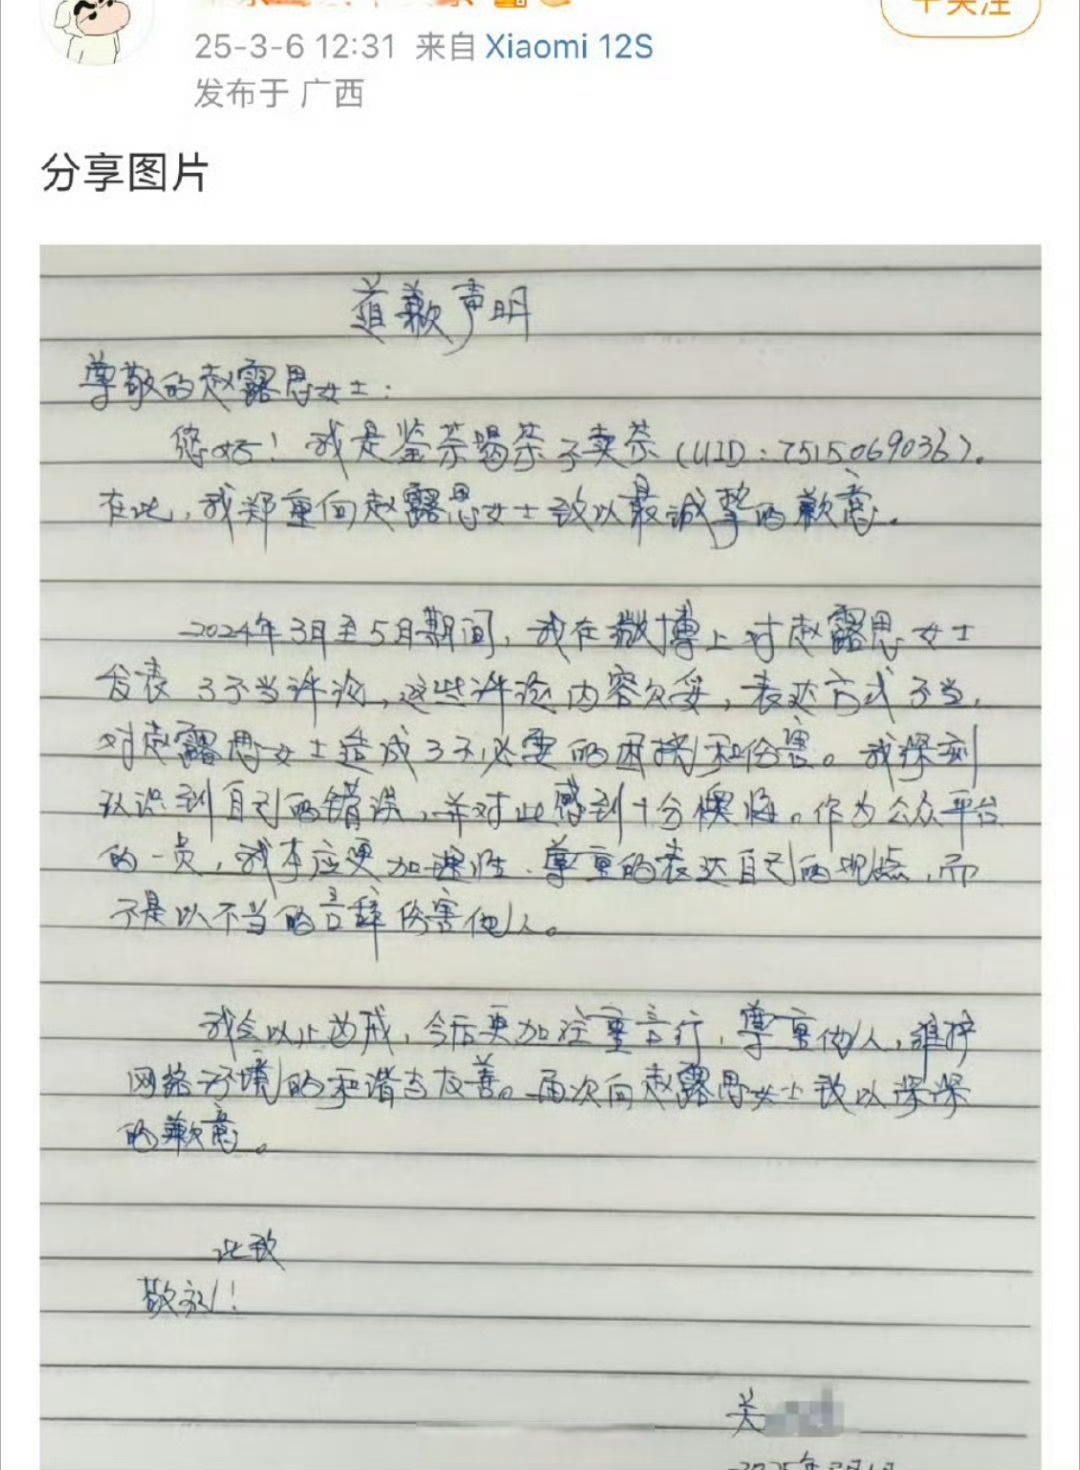 +关注
25-3-6 12:31 来自 Xiaomi 12S
发布于 广西
分享图片
道歉声明
尊敬的赵露思女士：
您好！我是鉴茶喝茶不卖茶（UID：7515069036）。
在此，我郑重向赵露思女士致以最诚挚的歉意。
2024年3月至5月期间，我在微博上对赵露思女士
发表了不当评论，这些评论内容欠妥，表达方式不当，
对赵露思女士造成了不必要的困扰和伤害。我深刻
认识到自己的错误，并对此感到十分懊悔。作为公众平台
的一员，我本应更加理性、尊重的表达自己的观点，而
不是以不当的言辞伤害他人。
我会以此为戒，今后更加注重言行，尊重他人，维护
网络环境的和谐与友善。再次向赵露思女士致以深深
的歉意。
此致
敬礼！
关